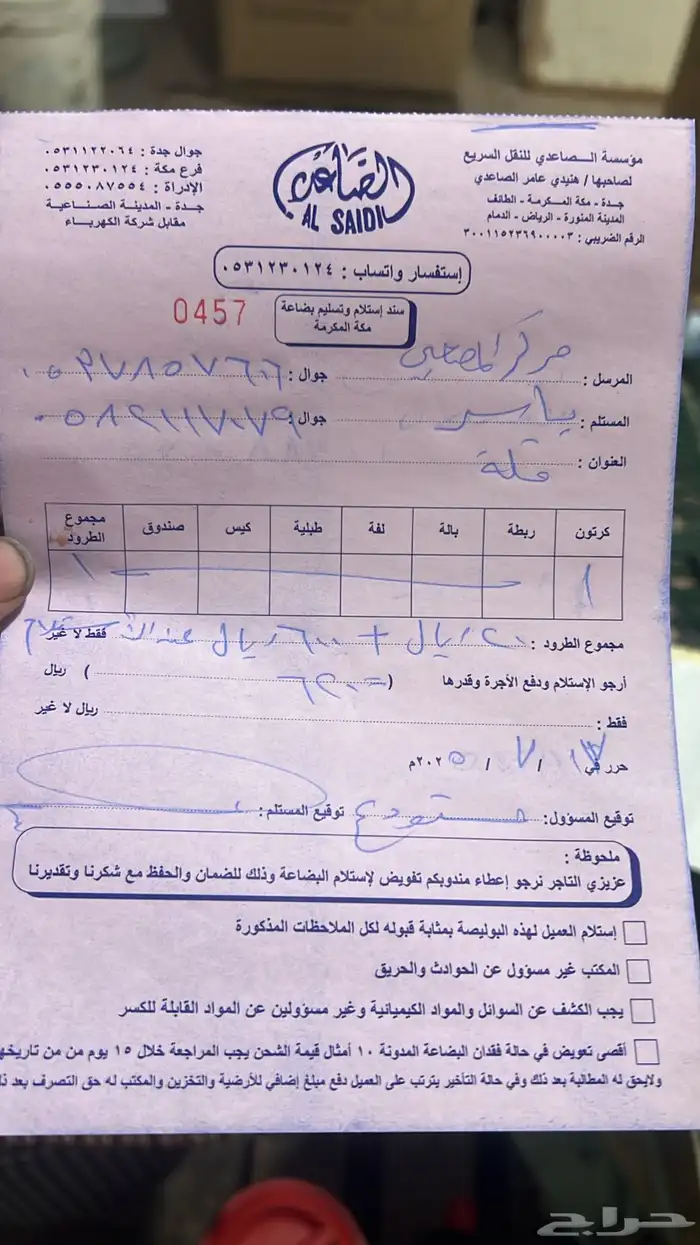 مؤسسة الـصاعدي للنقل السريع
لصاحبها / هنيدي عامر الصاعدي
جدة - مكة المكرمة - الطائف
المدينة المنورة - الرياض - الدمام
الرقم الضريبي : ٣٠٠١١٥٢٣٦٩٠٠٠٠٣
الصاعدي
AL SAIDI
جوال جدة : ٠٥٣١١٢٢٠٦٤
فرع مكة : ٠٥٣١٢٣٠١٢٤
الإدارة : ٠٥٥٥٠٨٧٥٥٤
جدة - المدينة الصناعية
مقابل شركة الكهرباء
إستفسار واتساب : ٠٥٣١٢٣٠١٢٤
سند إستلام وتسليم بضاعة
مكة المكرمة
0457
المرسل : مركز جوال :
المستلم : ياسر جوال :
العنوان :
كرتون ربطة بالة لفة طبلية كيس صندوق مجموع الطرود
١ ١
مجموع الطرود : ٢٠ ريال + ٦٠٠ ريال عند الاستلام فقط لا غير
أرجو الإستلام ودفع الأجرة وقدرها ( ٦٢٠ ) ريال
فقط : ريال لا غير
حرر في ١٧ / ٧ / ٢٠٢٥م
توقيع المسؤول: مستودع توقيع المستلم :
ملحوظة :
عزيزي التاجر نرجو إعطاء مندوبكم تفويض لإستلام البضاعة وذلك للضمان والحفظ مع شكرنا وتقديرنا
إستلام العميل لهذه البوليصة بمثابة قبوله لكل الملاحظات المذكورة
المكتب غير مسؤول عن الحوادث والحريق
يجب الكشف عن السوائل والمواد الكيميائية وغير مسؤولين عن المواد القابلة للكسر
أقصى تعويض في حالة فقدان البضاعة المدونة ١٠ أمثال قيمة الشحن يجب المراجعة خلال ١٥ يوم من من تاريخها
ولايحق له المطالبة بعد ذلك وفي حالة التأخير يترتب على العميل دفع مبلغ إضافي للأرضية والتخزين والمكتب له حق التصرف بعد
حراج